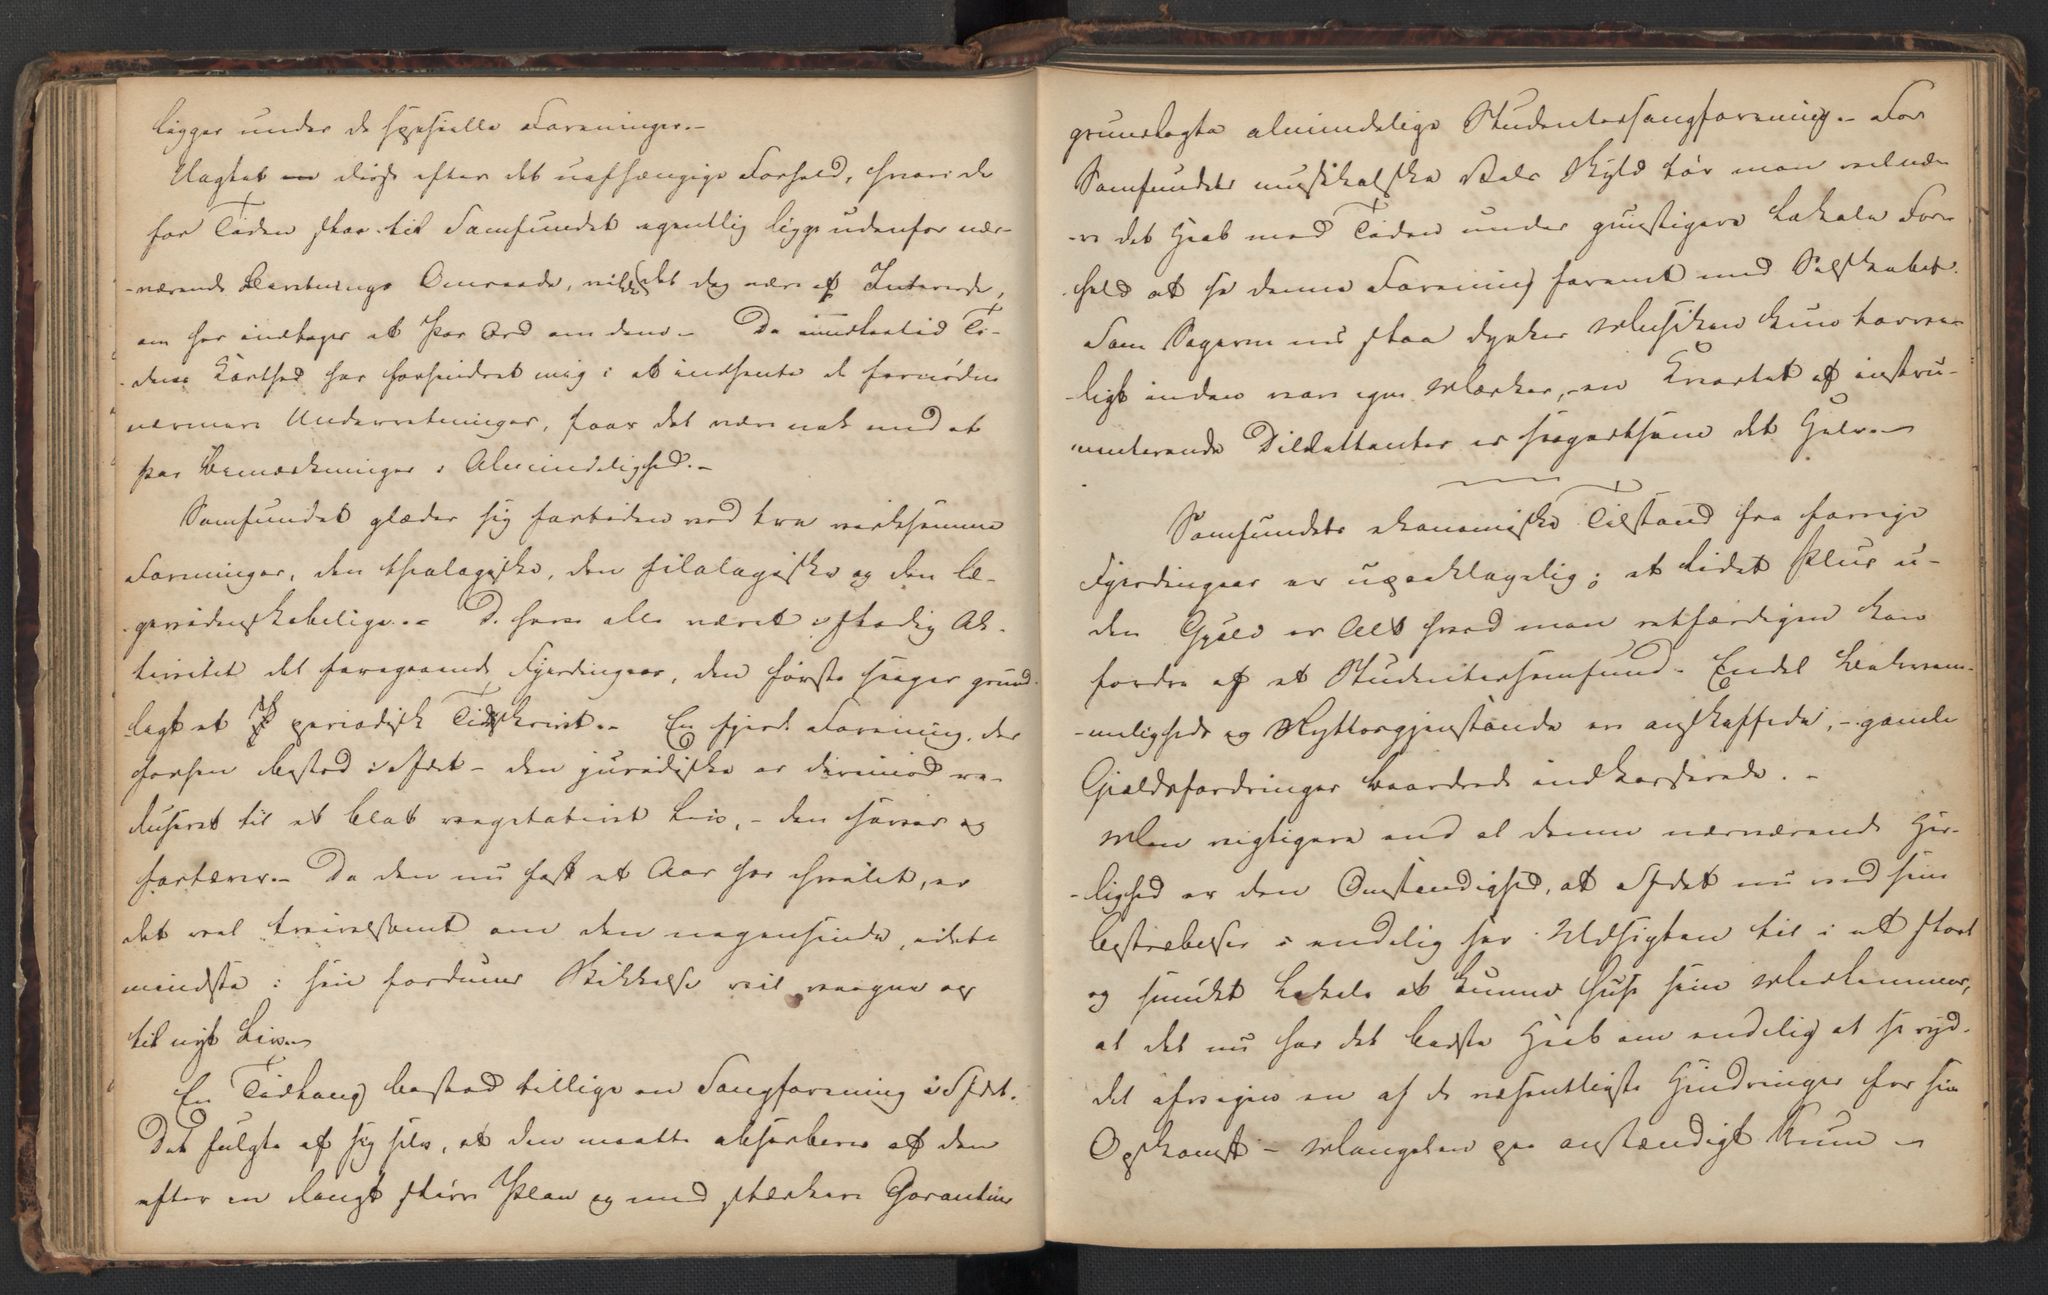 ligger under de specielle Foreninger.–
Uagtet disse efter det uafhængige Forhold, hvori de
for Tiden staa til Samfundet egentlig ligge udenfor nær-
-værende Beretnings Omraade, vil det dog være af Interesse,
om her indtages et Par Ord om dem.– Da imidlertid Ti-
-dens Korthed har forhindret mig i at indhente de fornødne
nærmere Underretninger, faar det være nok med et
Par Bemærkninger i Almindelighed.–
Samfundet glæder sig fortiden ved tre virksomme
Foreninger, den theologiske, den filologiske og den læ-
-gevidenskabelige.– De have alle været i stadig Ak-
tivitet det foregaaende Fjerdingaar, den første harger grund-
lagt et periodisk Tidsskrivt.– En fjerde Forening, der
forhen bestod i Sfdet – den juridiske er derimod re-
duseret til et blot vegetativt Liv, – den sover og
fortærer.– Da den nu fast et Aar har hvilet, er
det vel tvivlsomt om den nogensinde, i det
mindste i sin fordums Skikkelse vil vaagne op
til nyt Liv.–
En Tidlang bestod tillige en Sangforening i Sfdet.
Det fulgte af sig selv, at den maatte absorberes af den
efter en langt større Plan og med stærkere Garantier
grundlagte almindelige Studentersangforening.– For
Samfundets musikalske Dels Skyld tør man vel næ-
-re det Haab med Tiden under gunstigere Lokale For-
hold at se denne Forening forenet med Selskabet.
Som Sagerne nu staa dyrkes Musiken kun tarve-
-ligt inden vore egne Mærker, en Kvartet af instru-
menterende Dilettanter er saagodtsom det Hele.–
Samfundets ekonomiske Tilstand fra forrige
Fjerdingaar er upaaklagelig; et lidet Plus u-
den Gjæld er Alt hvad man retfærdigen kan
fordre af et Studentersamfund. Endel Bekvem-
-meligheds og Nyttesgjenstande ere anskaffede, – gamle
Gjældsfordringer indkasserede.–
Men vigtigere end al denne nærværende Her-
-lighed er den Omstændighed, at Sfdet nu ved sine
bestræbelser i endelig har Udsigten til i et stort
og smukt Lokale at kunne huse sine Medlemmer,
at det nu har det bedste Haab om endelig at se ryd-
det afveien en af de væsentligste Hindringer for sin
Opkomst – Mangelen paa anstændigt Rum –